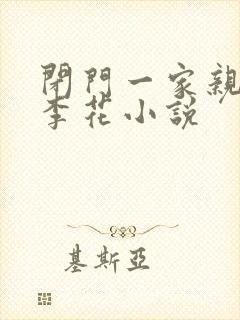 閉門一家親
李花小說
基斯亞